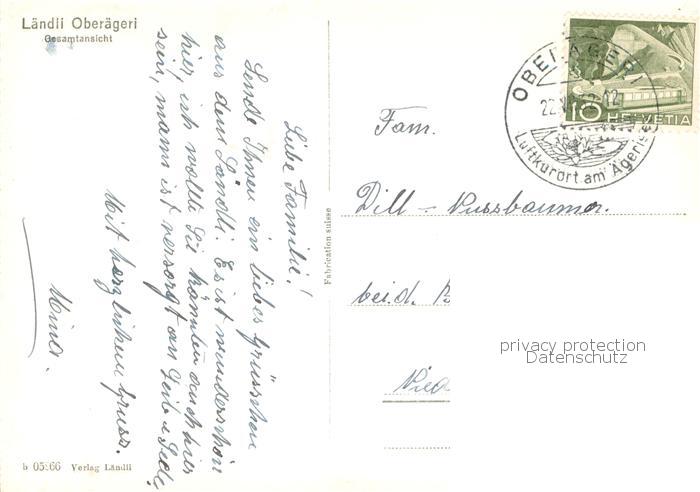 Ländli Oberägeri
Gesamtansicht
Liebe Familie!
Sende Ihnen ein liebes Grüsschen
aus dem Ländli. Es ist wunderschön
hier, ich wollte Sie könnten auch hier
sein, mann ist versorgt an Leib u Seele,
Mit herzlichem Gruss.
b 05266 Verlag Ländli
Fabrication suisse
OBERÄGERI
22.
12
Luftkurort am Ägerisee
10 HELVETIA
Fam.
Dill - Nussbaumer.
beid. B
Nied
privacy protection
Datenschutz